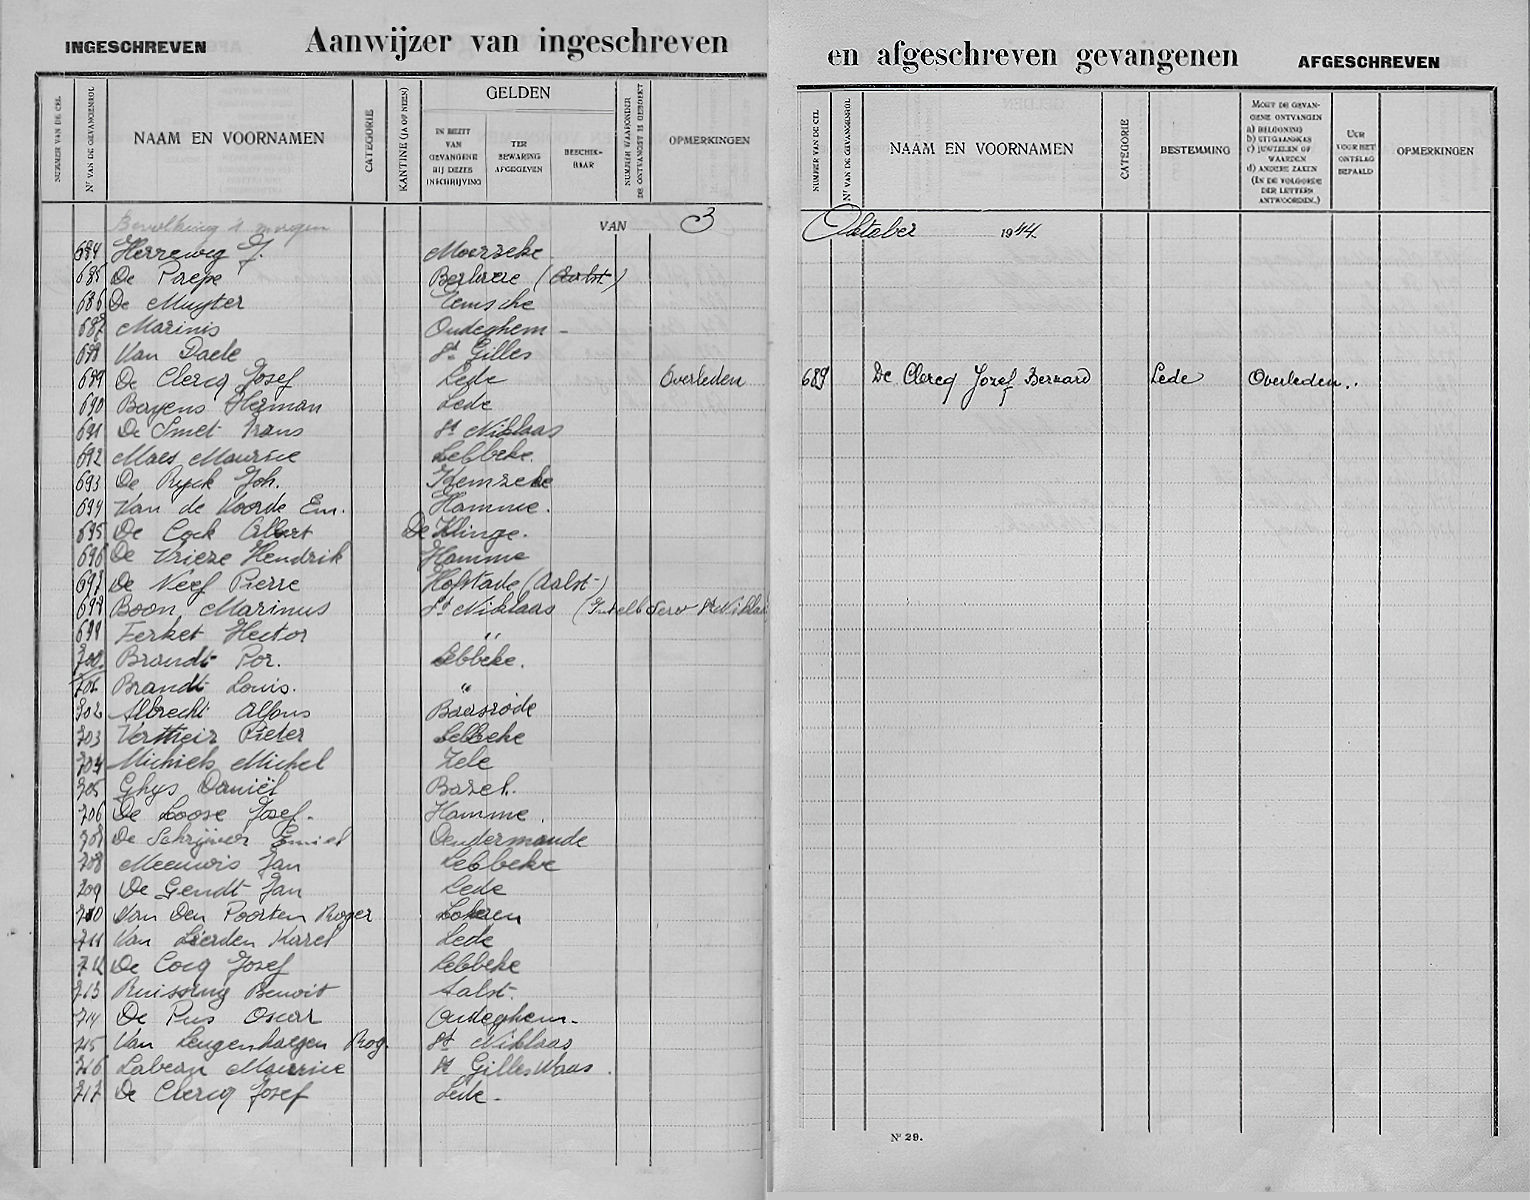 INGESCHREVEN Aanwijzer van ingeschreven en afgeschreven gevangenen AFGESCHREVEN
NUMMER VAN DE CEL
Nr VAN DE GEVANGENROL
NAAM EN VOORNAMEN
CATEGORIE
KANTINE (JA OF NEEN)
GELDEN
IN BEZIT VAN GEVANGENE BIJ DEZES INSCHRIJVING
TER BEWARING AFGEGEVEN
BESCHIKBAAR
NUMMER WAARONDER DE ONTVANGST IS GEBOEKT
OPMERKINGEN
NUMMER VAN DE CEL
Nr VAN DE GEVANGENROL
NAAM EN VOORNAMEN
CATEGORIE
BESTEMMING
MOET DE GEVAN-
GENE ONTVANGEN
a) BELOONING
b) UITGAANSKAS
c) JUWEELEN OF
WAARDEN
d) ANDERE ZAKEN
(IN DE VOLGORDE
DER LETTERS
ANTWOORDEN.)
UUR
VOOR HET
ONTSLAG
BEPAALD
OPMERKINGEN
Bevolking 's morgen VAN 3 Oktober 1944
684 Herreweg J. Moerzeke
685 De Praepe Berlaere (Aalst)
686 De Muyter Temsche
687 Marinis Oudeghem -
688 Van Daele St Gilles
689 De Clercq Josef Lede Overleden
690 Beyens Herman Lede
691 De Smet Frans St Niklaas
692 Maes Maurice Lebbeke.
693 De Ryck Joh. Kemzeke
694 Van de Voorde Em. Hamme.
695 De Cock Albert De Klinge.
696 De Vrieze Hendrik Hamme
697 De Neef Pierre Hofstade (Aalst)
698 Boon Marinus St Niklaas (Intell Serv St Niklaas
699 Ferket Hector "
700. Brandt Por. Lebbeke.
701 Brandt Louis. "
702 Albrecht Alfons Baasrode
703 Pieter Lebbeke
704 Michiels Michel Zele
705 Ghys Daniël Bazel.
706 De Loose Josef. Hamme.
707 De Schrijver Emiel Dendermonde
708 Meeuwis Jan Lebbeke
709 De Gendt Jan Lede
710 Van Den Poorten Roger Lokeren
711 Van Lierden Karel Lede
712 De Cocq Josef Lebbeke
713 Benoit Aalst.
714 De Pus Oscar Oudeghem.
715 Van Leugenhaegen Rog. St Niklaas
716 Labeau Maurice St Gilles Waas.
717 De Clercq Josef Lede -
689 De Clercq Jozef Bernard Lede Overleden..
Nr 29.